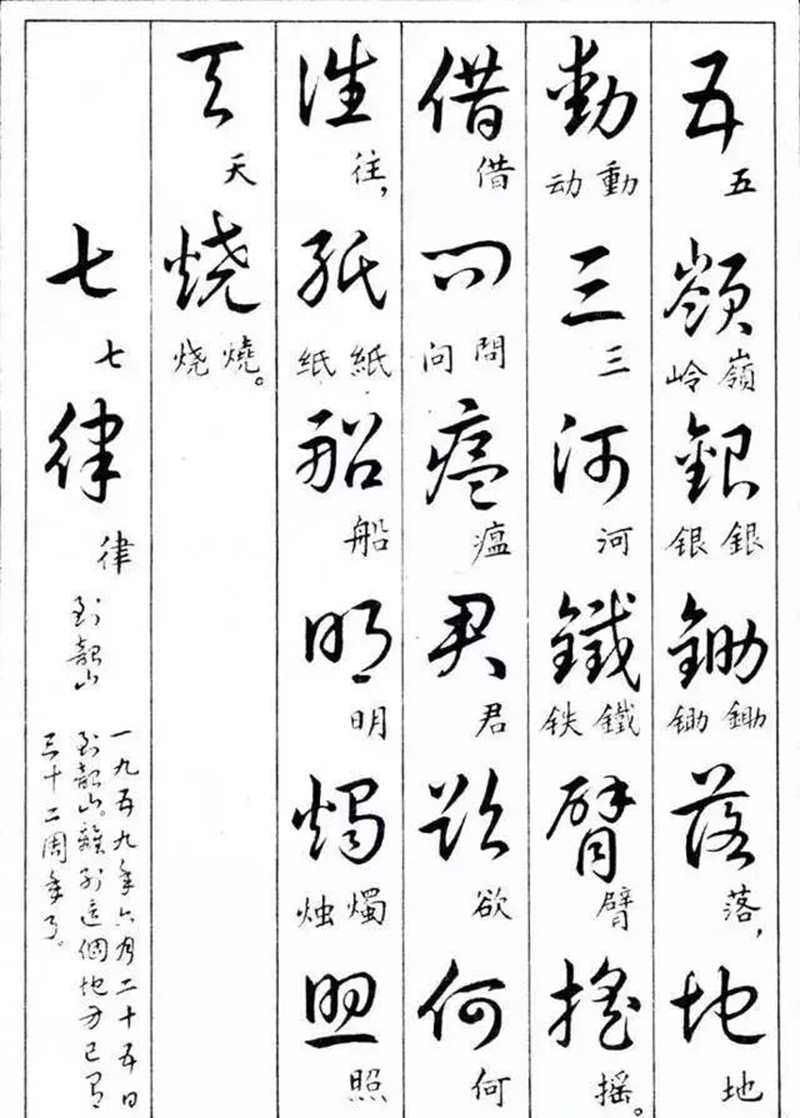 五嶺銀鋤落地
五嶺岭銀银鋤锄落,地
動三河鐵臂搖
動动三河鐵铁臂摇。
借問瘟君欲何
借問问瘟君欲何
往紙船明燭照
往,紙纸船明燭烛照
天烧
天燒烧。
七律
七律
到韶山
一九五九年六月二十五日
到韶山。離别這個地方已有
三十二周年了。